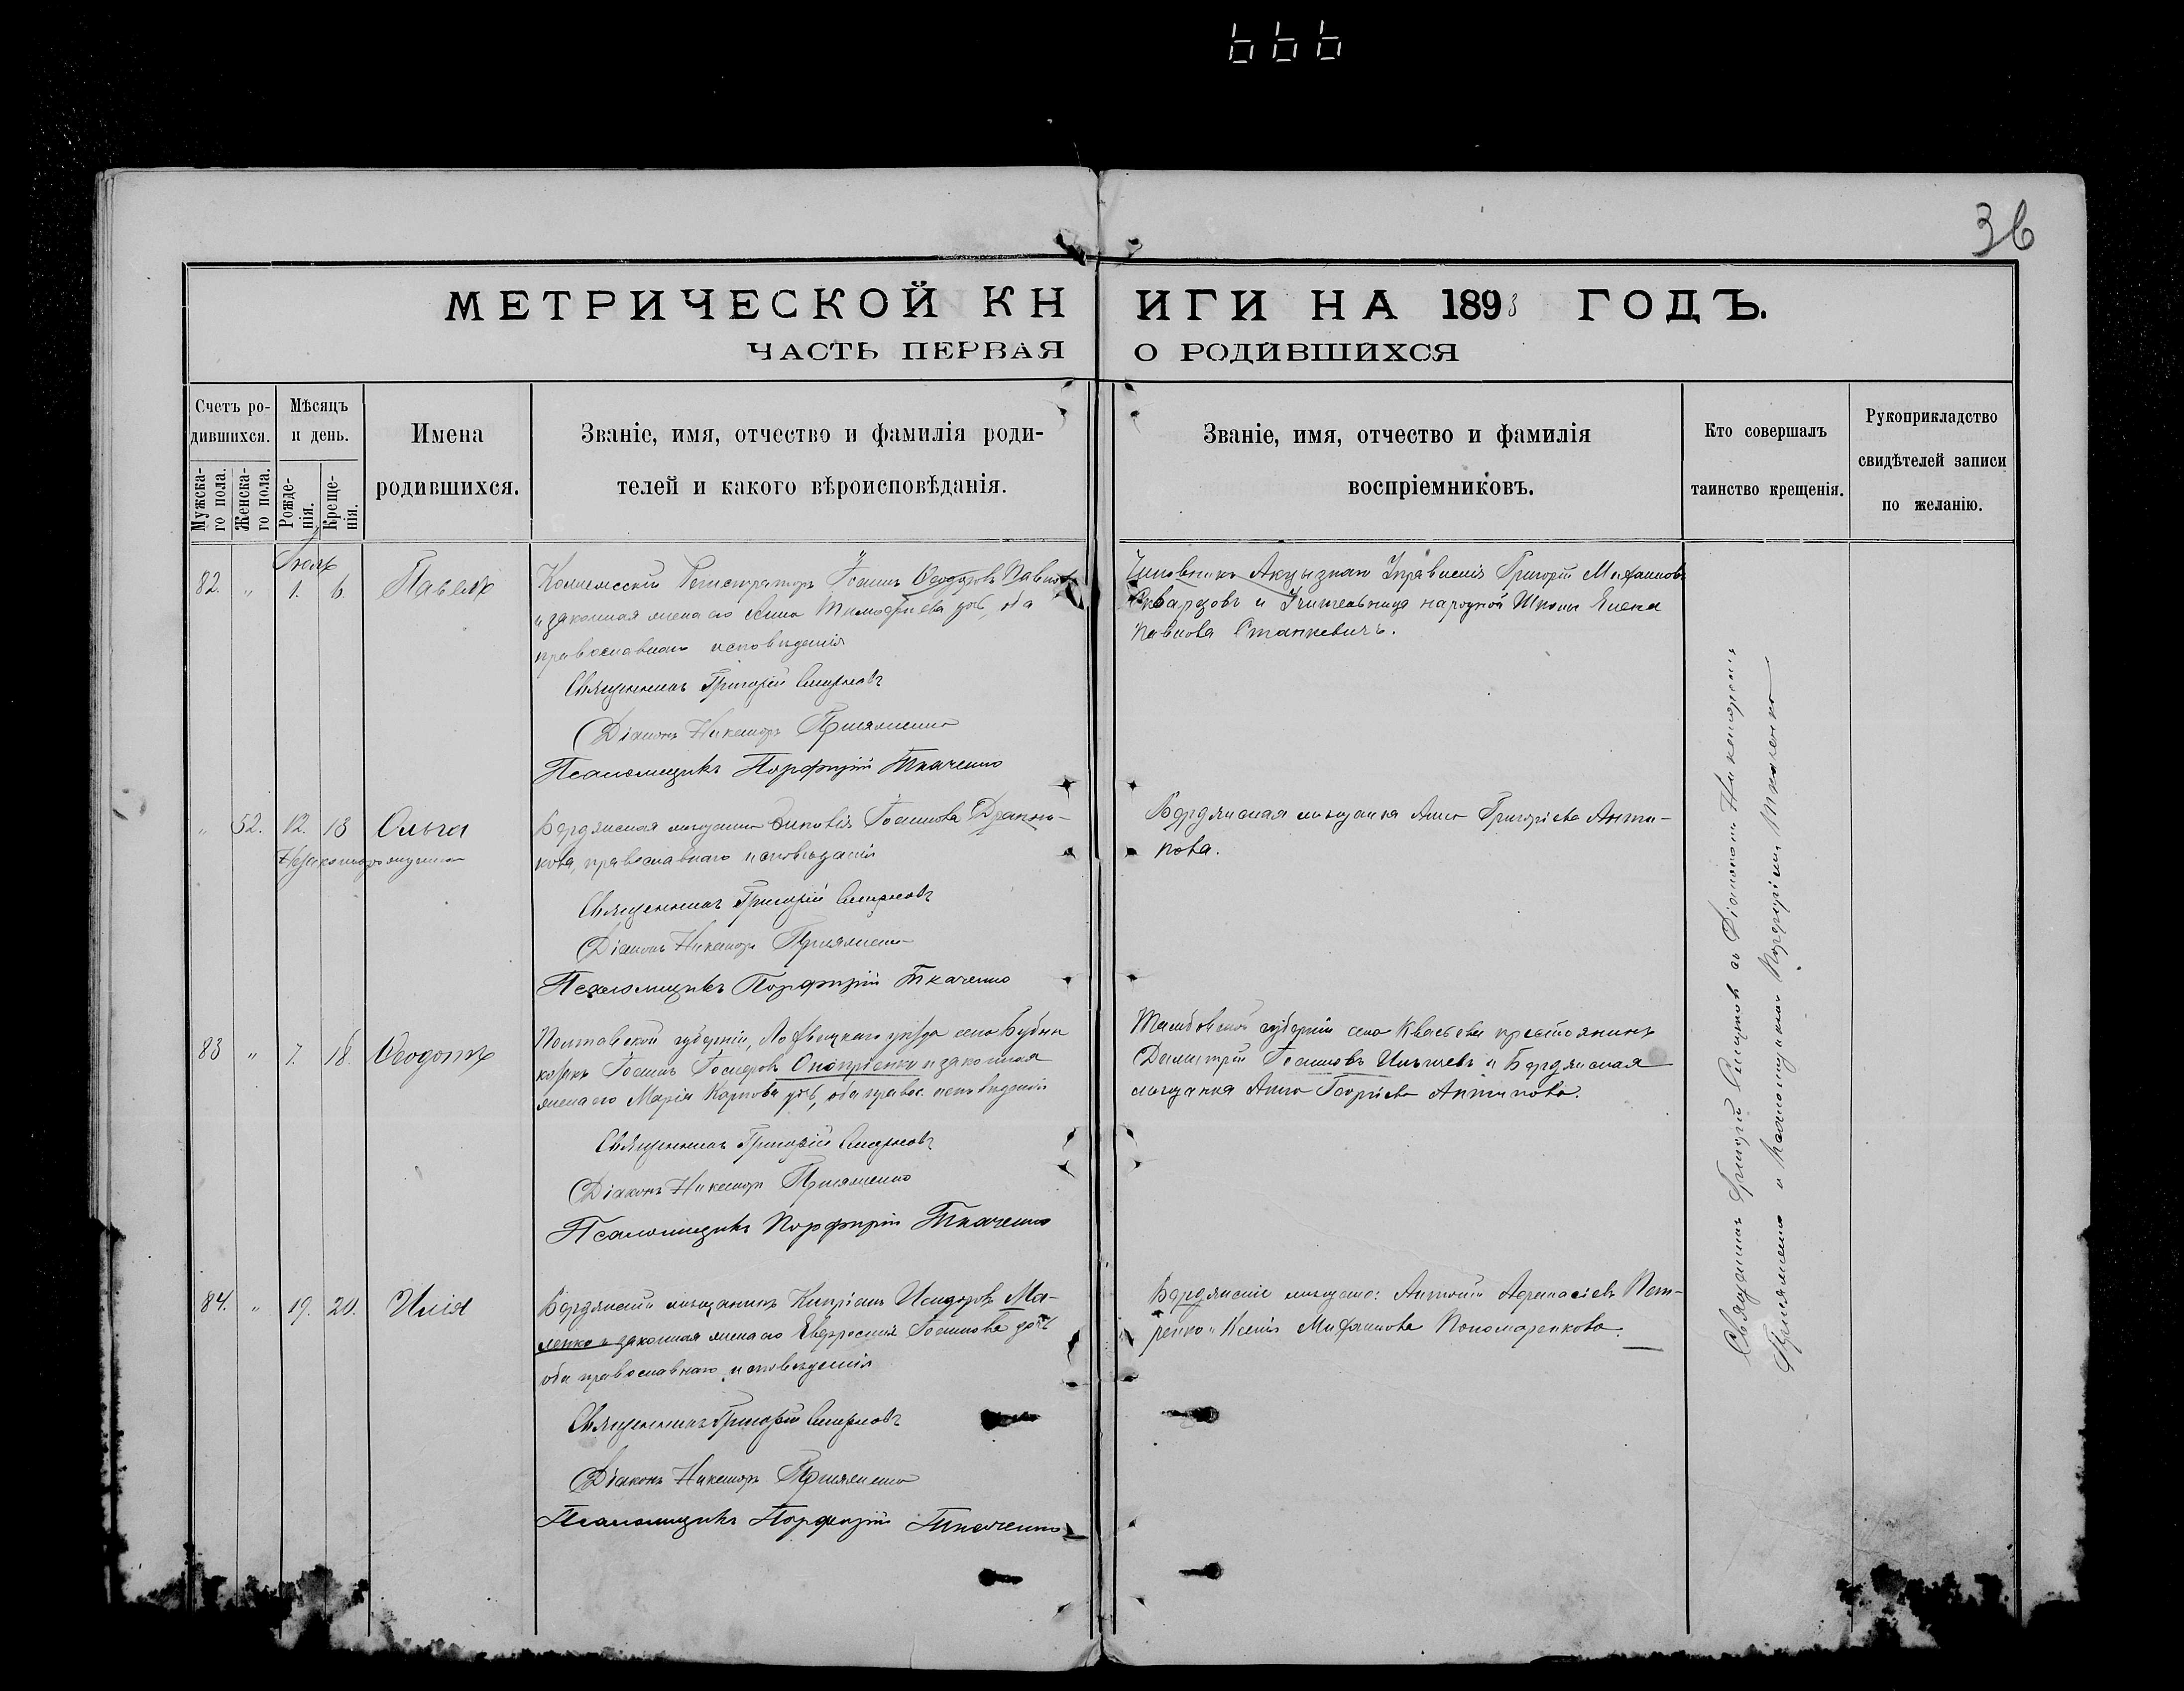 666
36
МЕТРИЧЕСКОЙ КНИГИ НА 1893 ГОДЪ.
ЧАСТЬ ПЕРВАЯ О РОДИВШИХСЯ
Счетъ ро-
дившихся.
Мужска-
го пола.
Женска-
го пола.
Мѣсяцъ
и день.
Рожде-
нія.
Креще-
нія.
Имена
родившихся.
Званіе, имя, отчество и фамилія роди-
телей и какого вѣроисповѣданія.
Званіе, имя, отчество и фамилія
воспріемниковъ.
Кто совершалъ
таинство крещенія.
Рукоприкладство
свидѣтелей записи
по желанію.
82. " 1. 6. Павелъ
Коллежскій Регистраторъ Іоаннъ Ѳеодоровъ
и законная жена его Анна Тимофеева доч, оба
православнаго исповѣданія
Священникъ Григорій Смирновъ
Діаконъ Никаноръ
Псаломщикъ Порфирій Ткаченко
Чиновникъ Акцызнаго Управленія Григорій
и Учительница народной Школы Елена
Павлова Станкевичъ.
" 52. 12. 18 Ольга
Незаконнорожденная
Бердянская мѣщанка Зиновія Іоаннова
кова, православнаго исповѣданія
Священникъ Григорій Смирновъ
Діаконъ Никаноръ
Псаломщикъ Порфирій Ткаченко
Бердянская мѣщанка Анна Григоріева Анти-
пова.
83 " 7. 18. Ѳеодотъ
Полтавской губерніи, уѣзда села
козакъ Іоаннъ Онопріенко и законная
жена его Марія Карпова доч, оба правос. исповѣданія
Священникъ Григорій Смирновъ
Діаконъ Никаноръ
Псаломщикъ Порфирій Ткаченко
Тамбовской губерніи села крестьянинъ
Димитрій Іоанновъ и Бердянская
мѣщанка Анна Георгіева Антипова.
84. " 19. 20. Илія
Бердянскій мѣщанинъ Кипріанъ Исидоровъ Ма-
ленко и законная жена его Евфросинія Іоаннова доч
оба православнаго исповѣданія
Священникъ Григорій Смирновъ
Діаконъ Никаноръ
Псаломщикъ Порфирій Ткаченко
Бердянскіе мѣщане: Антоній Афанасіевъ Пет-
ренко и Ксенія Пономаренкова.
Священникъ Григорій Смирновъ съ Діакономъ Никаноромъ
и Псаломщикомъ Порфиріемъ Ткаченко